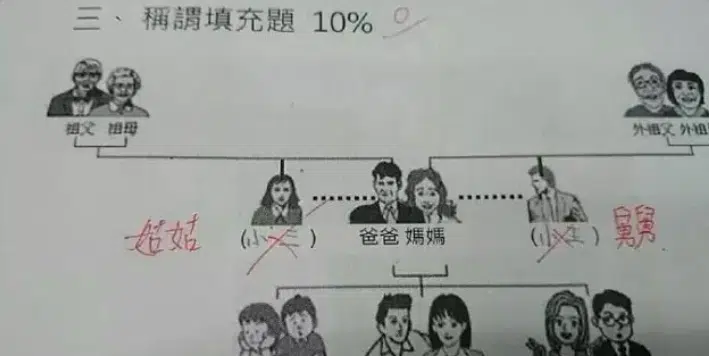 三、稱謂填充題 10% 0
祖父 祖母 外祖父 外祖
姑姑 (小三) 爸爸 媽媽 (小王) 舅舅